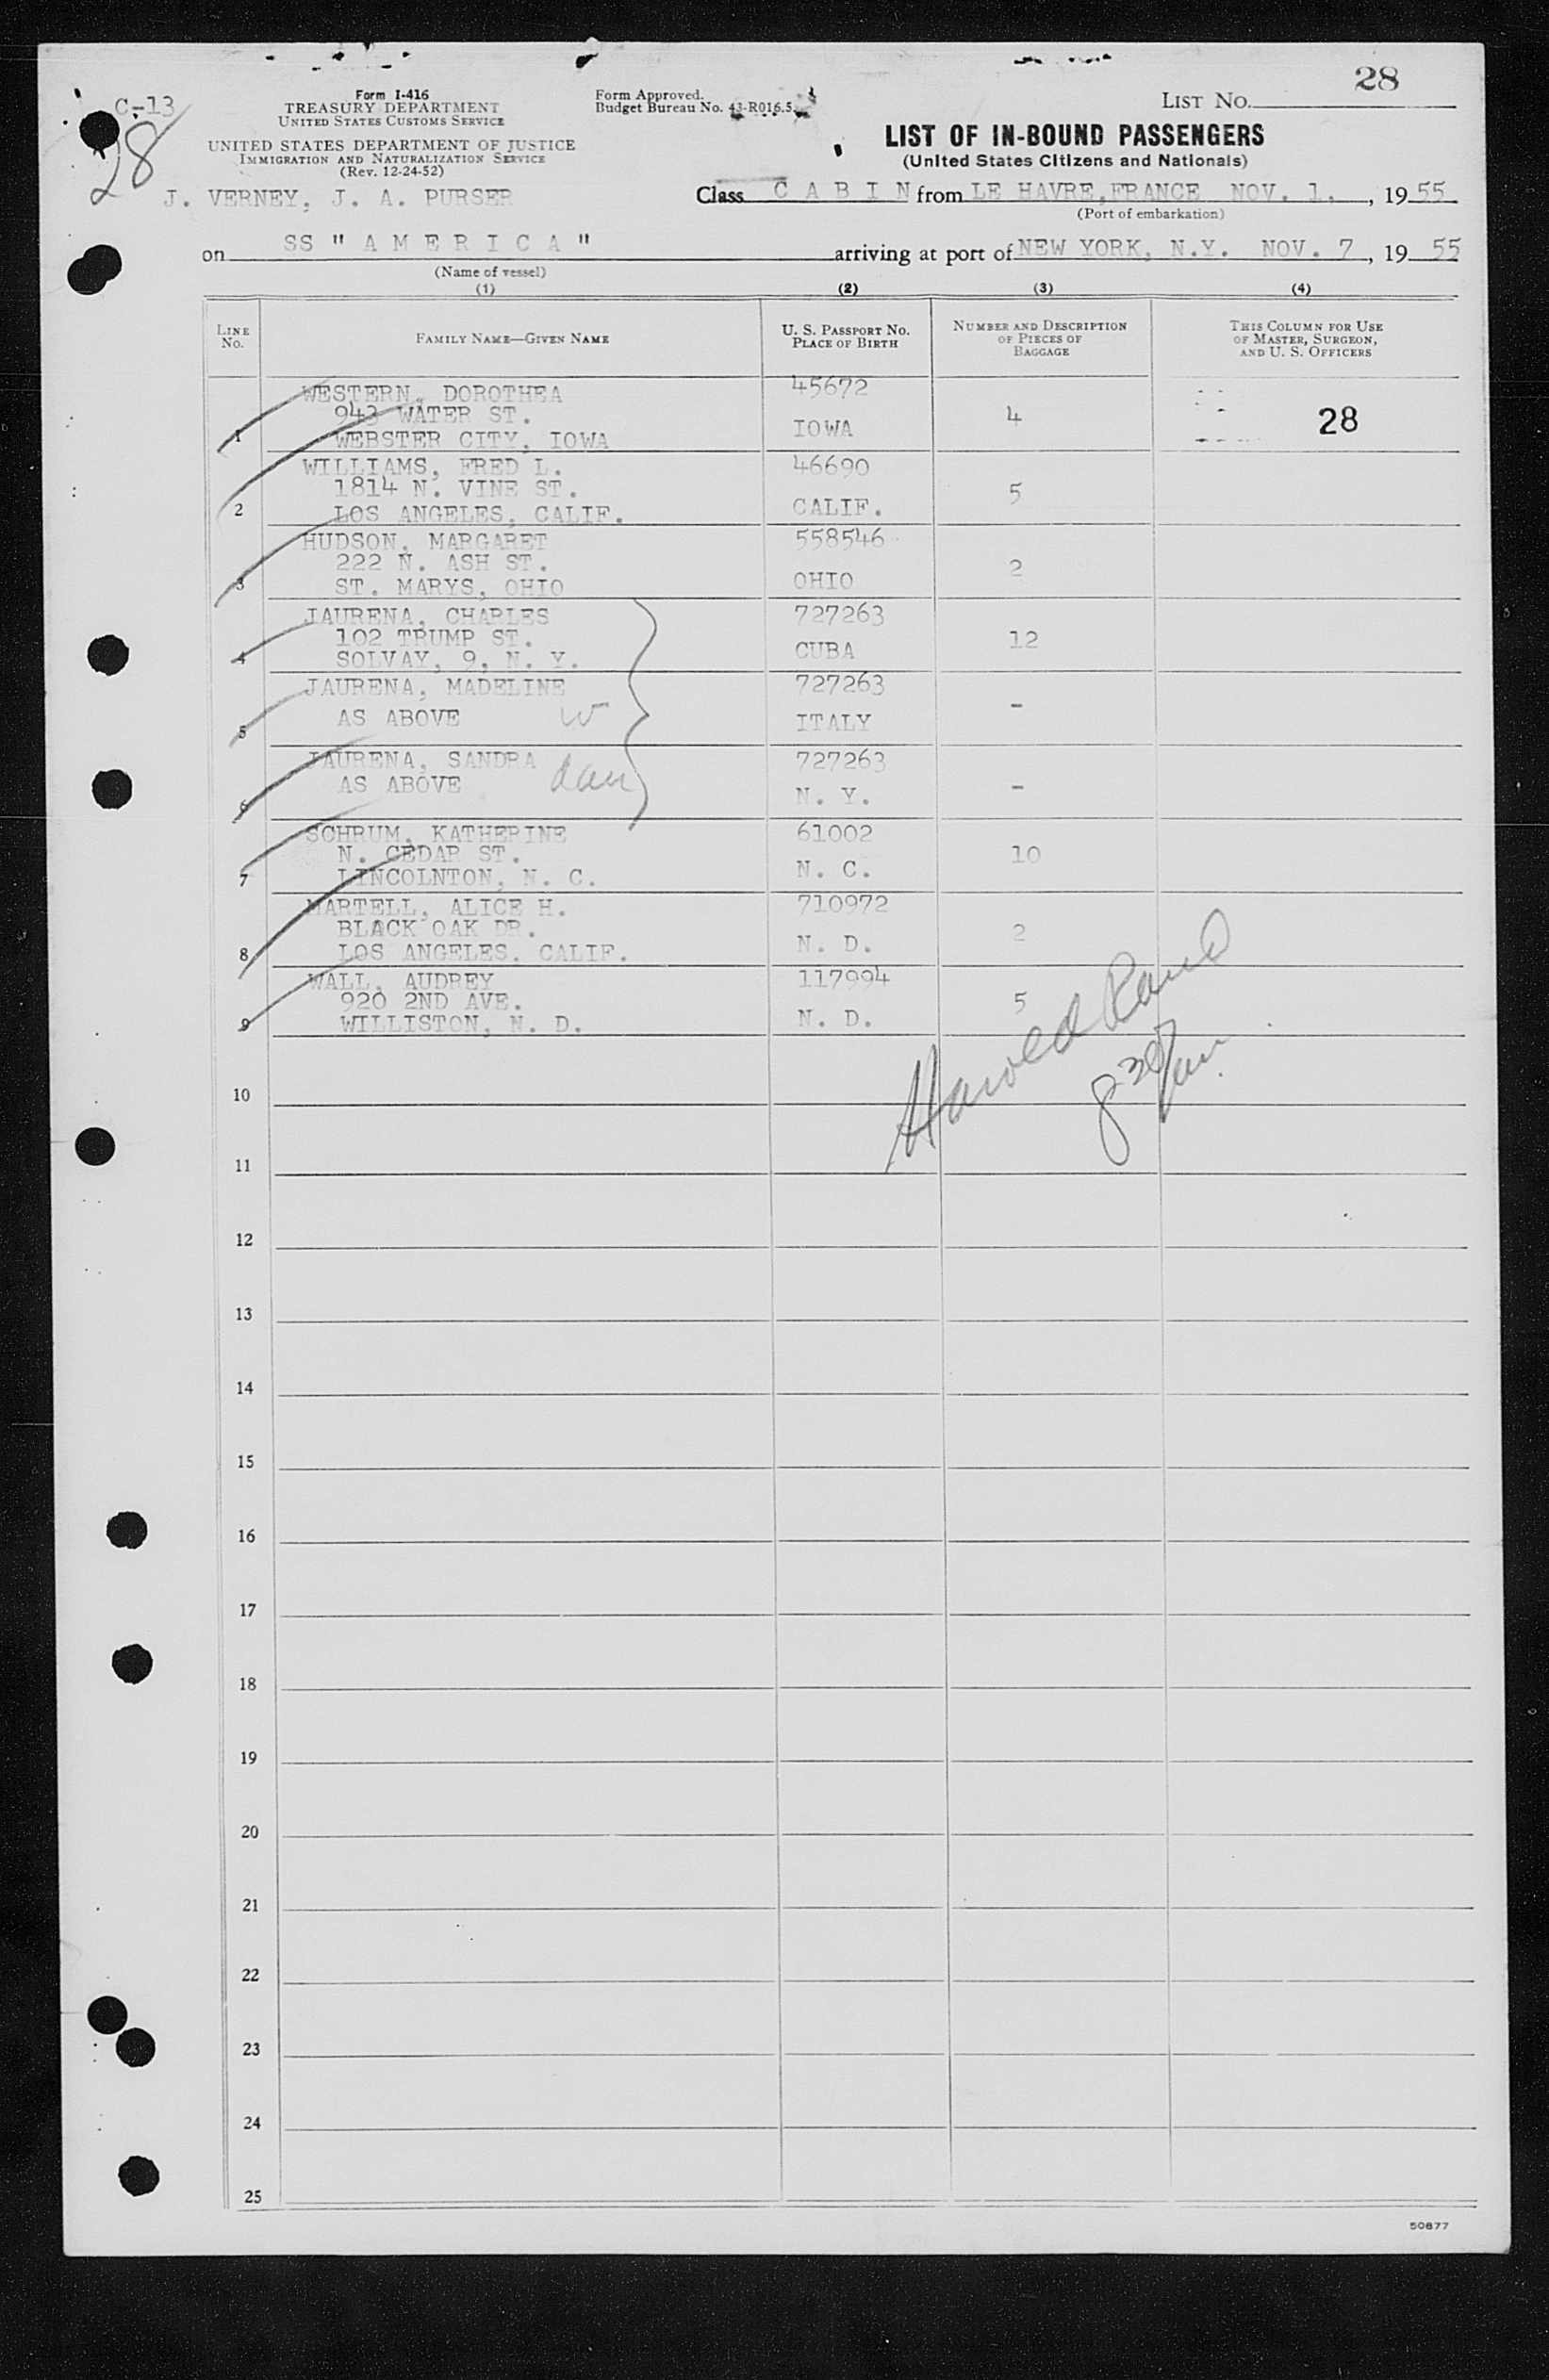 28
C-13
28
Form I-416
TREASURY DEPARTMENT
UNITED STATES CUSTOMS SERVICE
UNITED STATES DEPARTMENT OF JUSTICE
IMMIGRATION AND NATURALIZATION SERVICE
(Rev. 12-24-52)
Form Approved.
Budget Bureau No. 43-R016.5.
LIST NO.
LIST OF IN-BOUND PASSENGERS
(United States Citizens and Nationals)
J. VERNEY, J. A. PURSER
Class C A B I N from LE HAVRE, FRANCE NOV. 1, , 19 55
(Port of embarkation)
on SS " A M E R I C A " arriving at port of NEW YORK, N.Y. NOV. 7, 19 55
(Name of vessel)
(1) (2) (3) (4)
LINE NO.
FAMILY NAME—GIVEN NAME
U. S. PASSPORT NO.
PLACE OF BIRTH
NUMBER AND DESCRIPTION
OF PIECES OF
BAGGAGE
THIS COLUMN FOR USE
OF MASTER, SURGEON,
AND U. S. OFFICERS
WESTERN, DOROTHEA 45672
943 WATER ST. 4 28
1 WEBSTER CITY, IOWA IOWA
WILLIAMS, FRED L. 46690
1814 N. VINE ST. 5
2 LOS ANGELES, CALIF. CALIF.
HUDSON, MARGARET 558546
222 N. ASH ST. 2
3 ST. MARYS, OHIO OHIO
JAURENA, CHARLES 727263
102 TRUMP ST. 12
4 SOLVAY, 9, N. Y. CUBA
JAURENA, MADELINE 727263
5 AS ABOVE W ITALY -
JAURENA, SANDRA 727263
AS ABOVE dau -
6 N. Y.
SCHRUM, KATHERINE 61002
N. CEDAR ST. 10
7 LINCOLNTON, N. C. N. C.
MARTELL, ALICE H. 710972
BLACK OAK DR. 2
8 LOS ANGELES, CALIF. N. D.
WALL, AUDREY 117994
920 2ND AVE. 5
9 WILLISTON, N. D. N. D.
Harold
830
10
11
12
13
14
15
16
17
18
19
20
21
22
23
24
25
50877